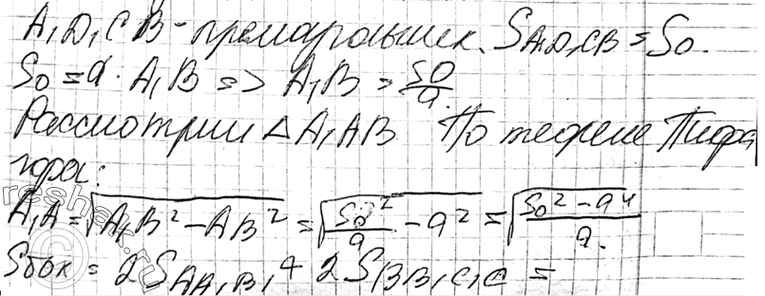 A₁D₁CB - прямоугольник. S A₁D₁CB = S₀.
S₀ = a · A₁B => A₁B = S₀/a
Рассмотрим △A₁AB По теореме Пифа
гора:
A₁A = √(A₁B² - AB²) = √(S₀²/a - a²) = √((S₀² - a⁴)/a)
Sбок = 2S AA₁B₁ + 2S BB₁C₁C =